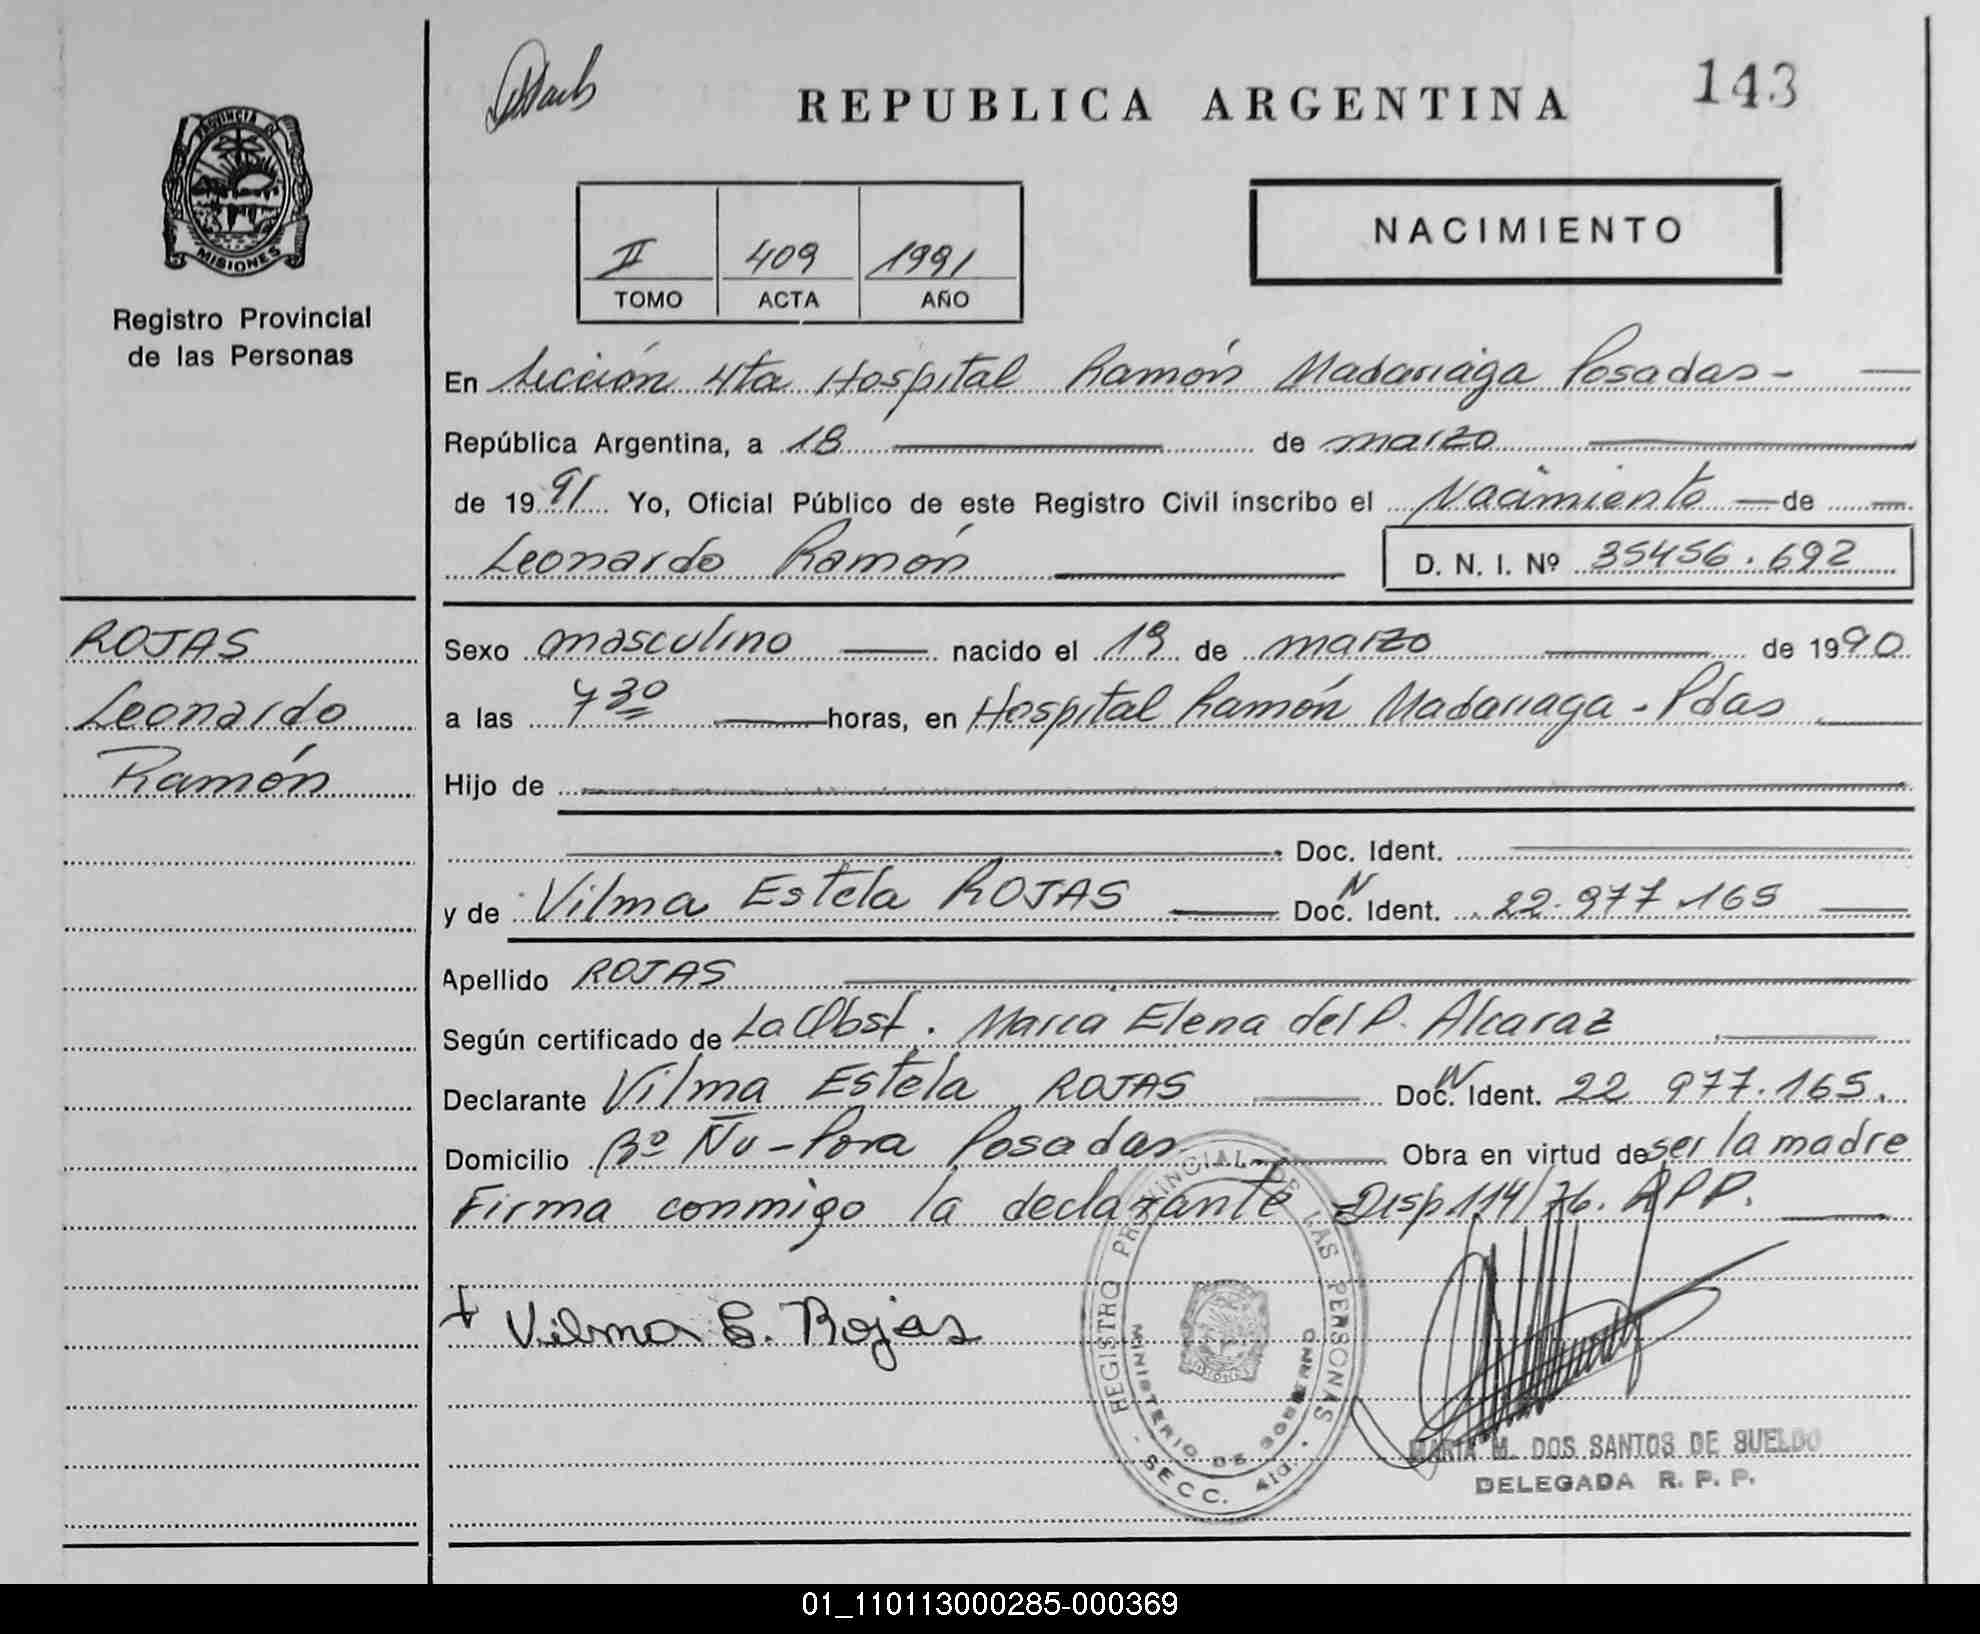 143
REPUBLICA ARGENTINA
PROVINCIA DE
MISIONES
Registro Provincial
de las Personas
NACIMIENTO
II 409 1991
TOMO ACTA AÑO
En Sección 4ta Hospital Ramón Madariaga Posadas -
República Argentina, a 18 de marzo
de 1991 Yo, Oficial Público de este Registro Civil inscribo el Nacimiento de
Leonardo Ramón D. N. I. Nº 35456.692
ROJAS
Leonardo
Ramón
Sexo masculino nacido el 19 de marzo de 1990
a las 7 30 horas, en Hospital Ramón Madariaga - Pdas
Hijo de
Doc. Ident.
y de Vilma Estela ROJAS Doc. N Ident. 22.977.165
Apellido ROJAS
Según certificado de La Obst. Maria Elena del P. Alcaraz
Declarante Vilma Estela ROJAS Doc. N Ident. 22 977.165.
Domicilio Bº Ñu-Pora Posadas Obra en virtud de ser la madre
Firma conmigo la declarante Disp 114/76. RPP.
+ Vilma E. Rojas
REGISTRO PROVINCIAL DE LAS PERSONAS
MINISTERIO DE GOBIERNO
- SECC. 4ta. -
MARIA M. DOS SANTOS DE SUELDO
DELEGADA R. P. P.
01_110113000285-000369